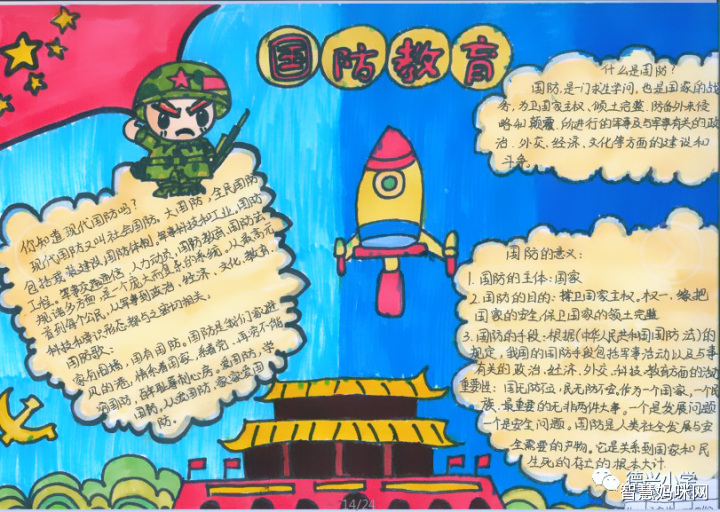 国防教育
什么是国防？
国防,是一门求生学问,也是国家的战
务,为卫国家主权、领土完整.防备外来侵
略和颠覆,所进行的军事及与军事有关的政
治.外交.经济.文化等方面的建设和
斗争.
你知道现代国防吗？
现代国防又叫社会国防、大国防,全民国防
包括武装建设,国防体制,军事科技和工业,国防
工程、军事交通通信、人力动员,国防教育,国防法
规诸多方面,是一个庞大而复杂的系统,从最高元
首到每个公民,从军事到政治、经济、文化、教育
科技和意识形态都与之密切相关。
国防歌:
家有围墙,国有国防。国防是我们家进
国防的意义:
1. 国防的主体:国家
2. 国防的目的:捍卫国家主权。权一.缘.把
国家的安全,保卫国家的领土完整
3. 国防的手段:根据(中华人民共和国国防法)的
规定,我国的国防手段包括军事活动以及与事
有关的政治.经济.外交.科技.教育方面的活动
重要性: 国无防不立,民无防不安,作为一个国家,一个民
族.最重要的无非两件大事。一个是发展问题
一个是安全问题。国防是人类社会发展与安
全需要的产物。它是关系到国家和民
生死的存亡的根本大计.
14/24
德兴小学
智慧妈咪网